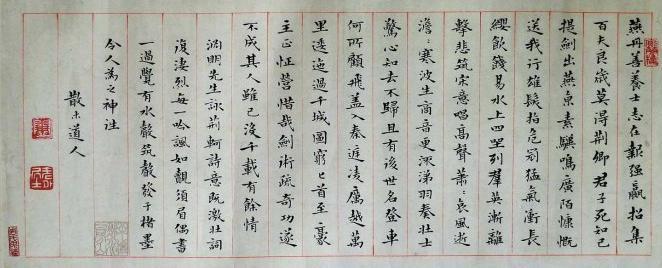 燕丹善養士志在報强嬴招集
百夫良歲莫得荆卿君子死知己
提劍出燕京素驥鳴廣陌慷慨
送我行雄髮指危冠猛氣衝長
纓飲餞易水上四坐列羣英漸離
擊悲筑宋意唱高聲蕭〻哀風逝
澹〻寒波生商音更流涕羽奏壯士
驚心知去不歸且有後世名登車
何所顧飛盖入秦庭凌厲越萬
里逶迤過千城圖窮匕首至豪
主正怔營惜哉劍術疏奇功遂
不成其人雖已没千載有餘情
淵明先生詠荆軻詩意既激壯詞
復凄烈每一吟諷如覩須眉偶書
一過覺有水聲筑聲發于楮墨
令人為之神往
散木道人